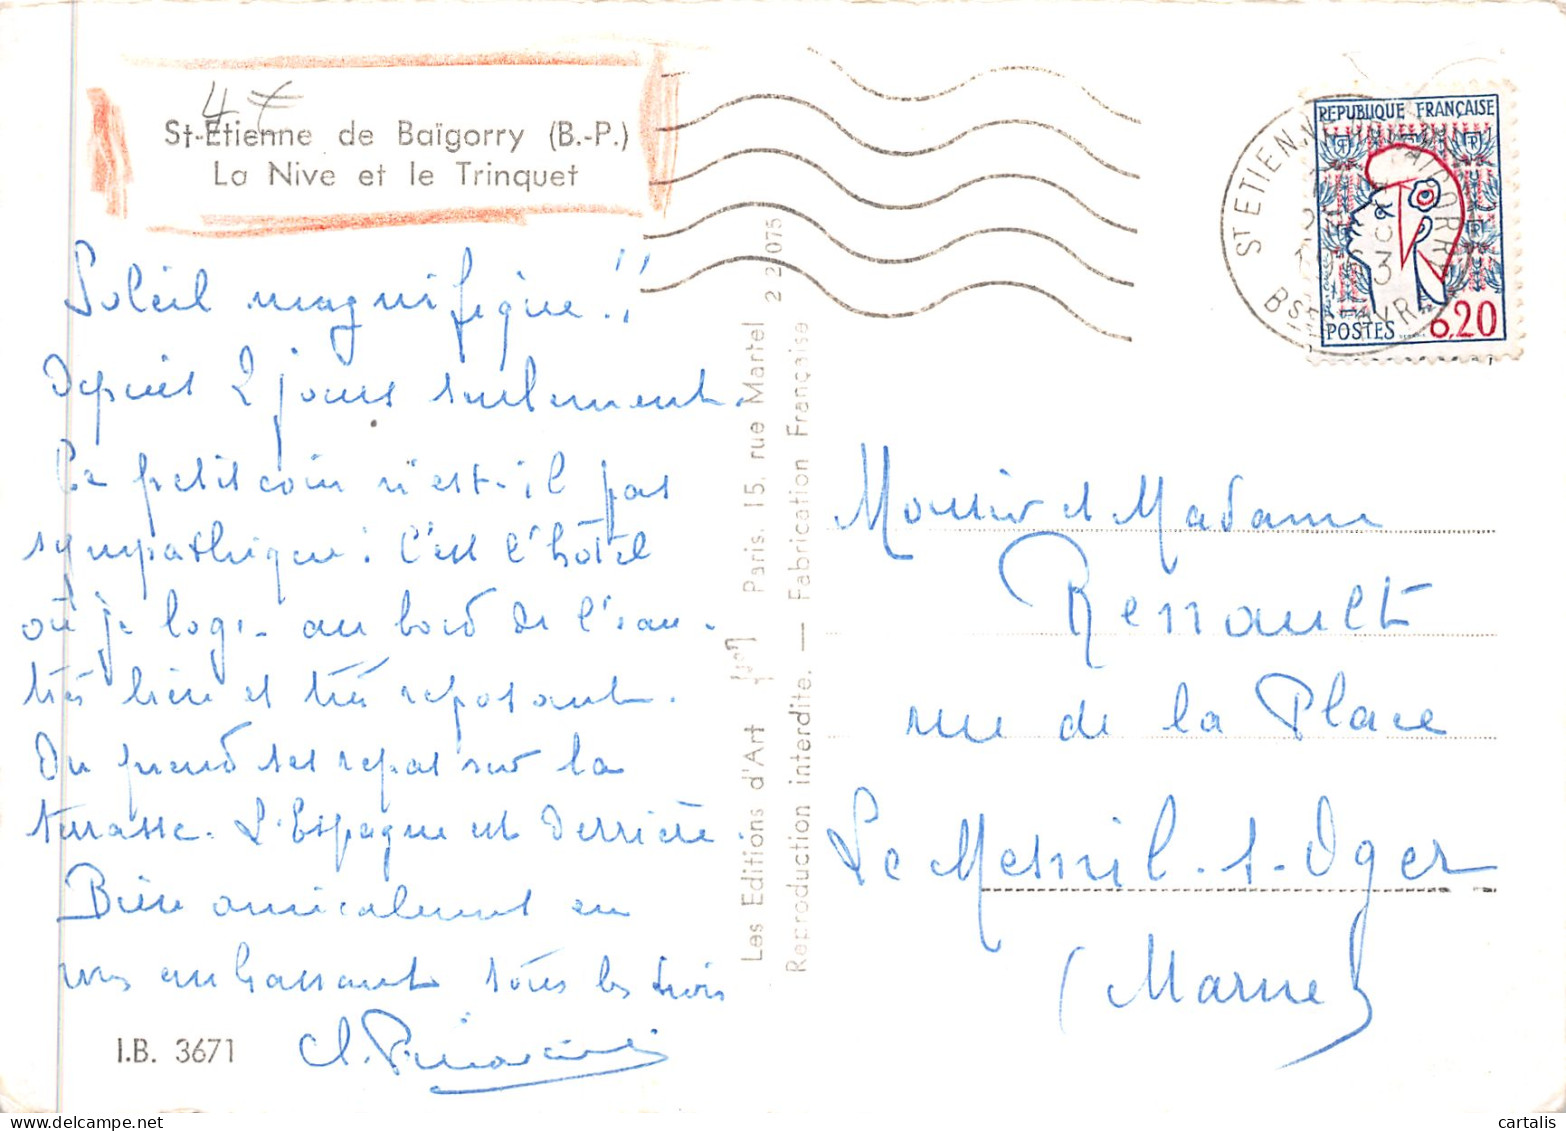 4€
St-Etienne de Baïgorry (B.-P.)
La Nive et le Trinquet
Soleil magnifique !!
Depuis 2 jours seulement.
Ce petit coin n'est-il pas
sympathique : C'est l'hôtel
où je loge - au bord de l'eau.
très bien et très reposant.
On prend ses repas sur la
terrasse. L'Espagne est derrière.
Bien amicalement en
vous embrassant tous les trois
I.B. 3671
Les Editions d'Art Paris. 15, rue Martel 2 2 075
Reproduction interdite. — Fabrication Française
REPUBLIQUE FRANÇAISE
POSTES 0,20
ST ETIENNE DE BAIGORRY
Monsieur et Madame
Renault
rue de la Place
Le Mesnil-s-Oger
(Marne)
cartalis